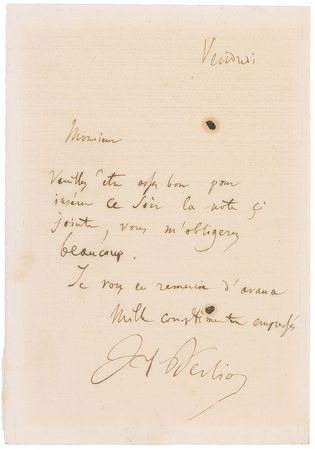 Vendredi
Monsieur
Veuillez être assez bon pour
insérer ce soir la note ci
jointe, vous m'obligerez
beaucoup.
Je vous en remercie d'avance
Mille compliments empressés
H Berlioz